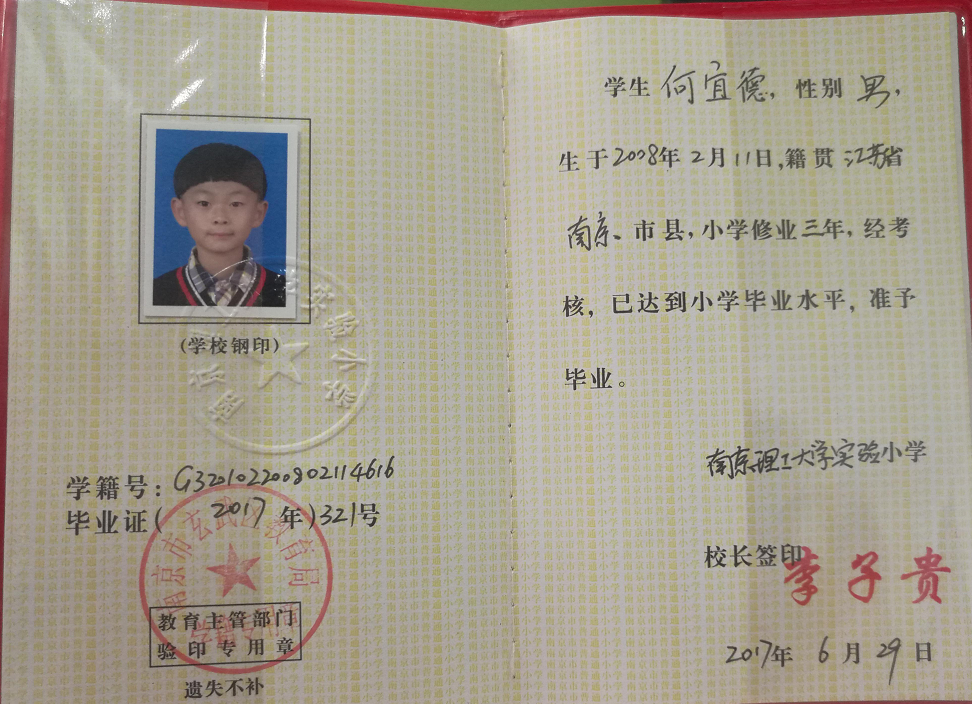 (学校钢印)
南京理工大学实验小学
学籍号：G320102200802114616
毕业证(2017年)321号
南京市玄武区教育局
学籍专用章
教育主管部门
验印专用章
遗失不补
学生何宜德，性别男，
生于2008年2月11日，籍贯江苏省
南京、市县，小学修业三年，经考
核，已达到小学毕业水平，准予
毕业。
南京理工大学实验小学
校长签印
李子贵
2017年6月29日